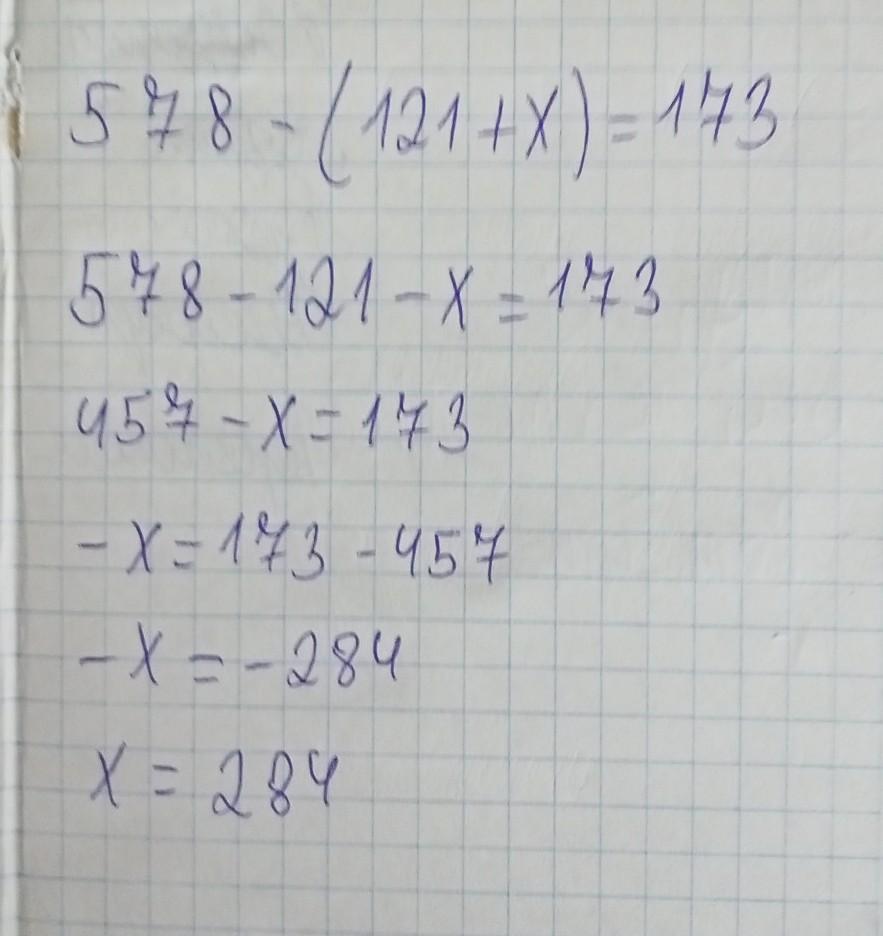 578 - (121 + x) = 173
578 - 121 - x = 173
457 - x = 173
- x = 173 - 457
- x = - 284
x = 284